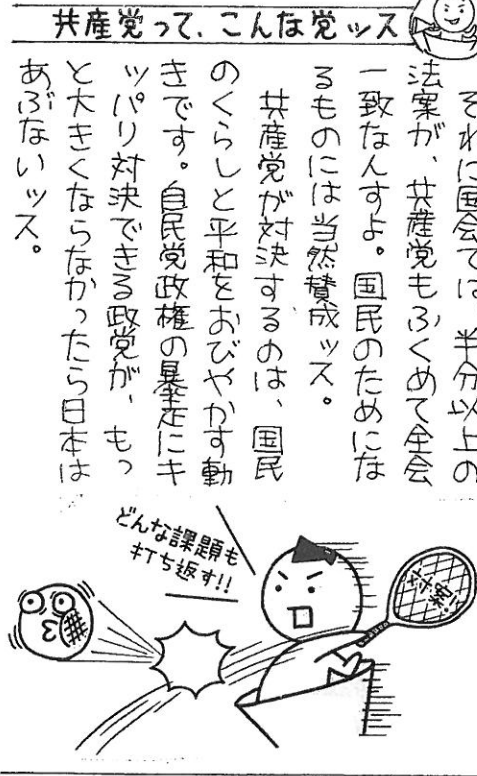 共産党って、こんな党ッス
それに国会では、半分以上の
法案が、共産党もふくめて全会
一致なんすよ。国民のためにな
るものには当然賛成ッス。
共産党が対決するのは、国民
のくらしと平和をおびやかす動
きです。自民党政権の暴走にキ
ッパリ対決できる政党が、もっ
と大きくならなかったら日本は
あぶないッス。
どんな課題も
打ち返す!!
対案!